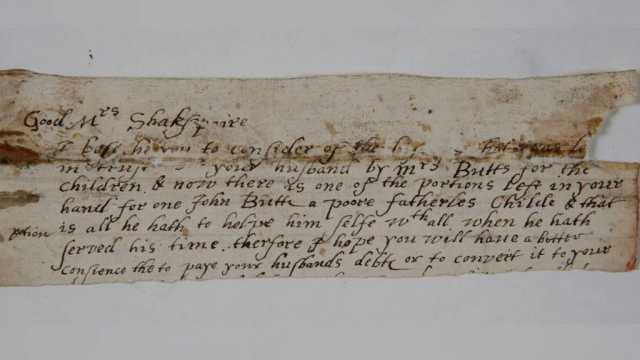 Good Mrs Shakspaire
you to consider of the
in trust your husband by mrs Butts for the
children & now there is one of the portions left in your
hand for one John Butte a poore fatherles Childe & that
is all he hath to helpe him selfe wthall when he hath
served his time. therfore I hope you will have a better
consience the to paye your husbands debte or to convert it to your